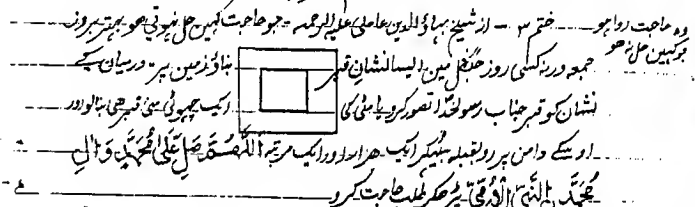 وہ حاجت روا ہو ختم ۳ - از شیخ بہاؤ الدین عاملی علیہ الرحمہ - جو حاجت کہین حل نہوتی ہو بہتر بروز
جو کہین حل نہ ہو
جمعہ ورنہ کسی روز جنگل مین ایسا نشان قبر بناؤ زمین پر - درمیان کے
نشان کو قبر جناب رسولخدا تصور کرو یا مٹی کی ایک چھوٹی سی قبر ہی بنالو اور
اوسکے دامن پر رو بقبلہ بیٹھکر ایک ہزار اور ایک مرتبہ اَللّٰھُمَّ صَلِّ عَلٰی مُحَمَّدٍ وَّاٰلِ
مُحَمَّدٍ النَّبِیِّ الْاُمِّیِّ پڑھکر طلب حاجت کرو